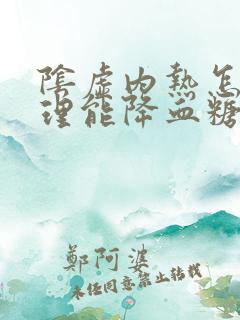 陰虛內熱怎
理能降血糖
鄭阿婆
未經同意禁止轉載